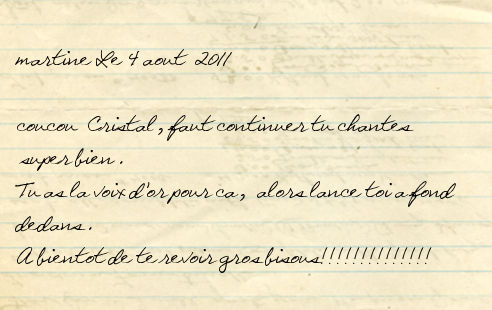 martine Le 4 aout 2011
coucou Cristal, faut continuer tu chantes
super bien.
Tu as la voix d'or pour ca, alors lance toi a fond
dedans.
A bientot de te revoir gros bisous!!!!!!!!!!!!!!